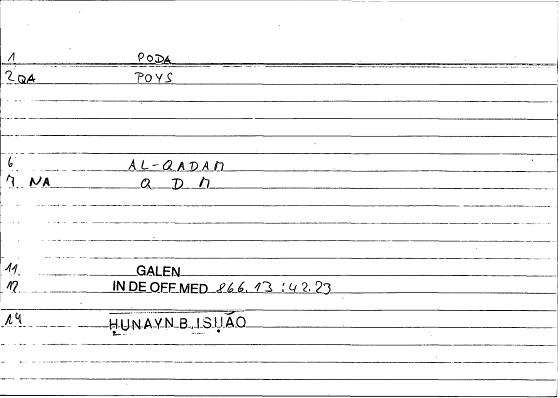 1 PODA
2 QA POYS
6 AL-QADAM
7 NA Q D M
11 GALEN
12 IN DE OFF.MED 866.13 :42.23
14 ḤUNAYN B. ISḤĀQ